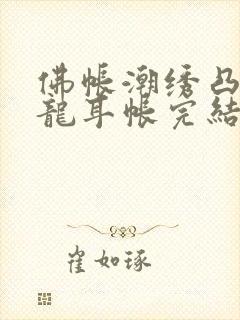 佛帳潮绣凸
龍耳帳完結
崔如琢